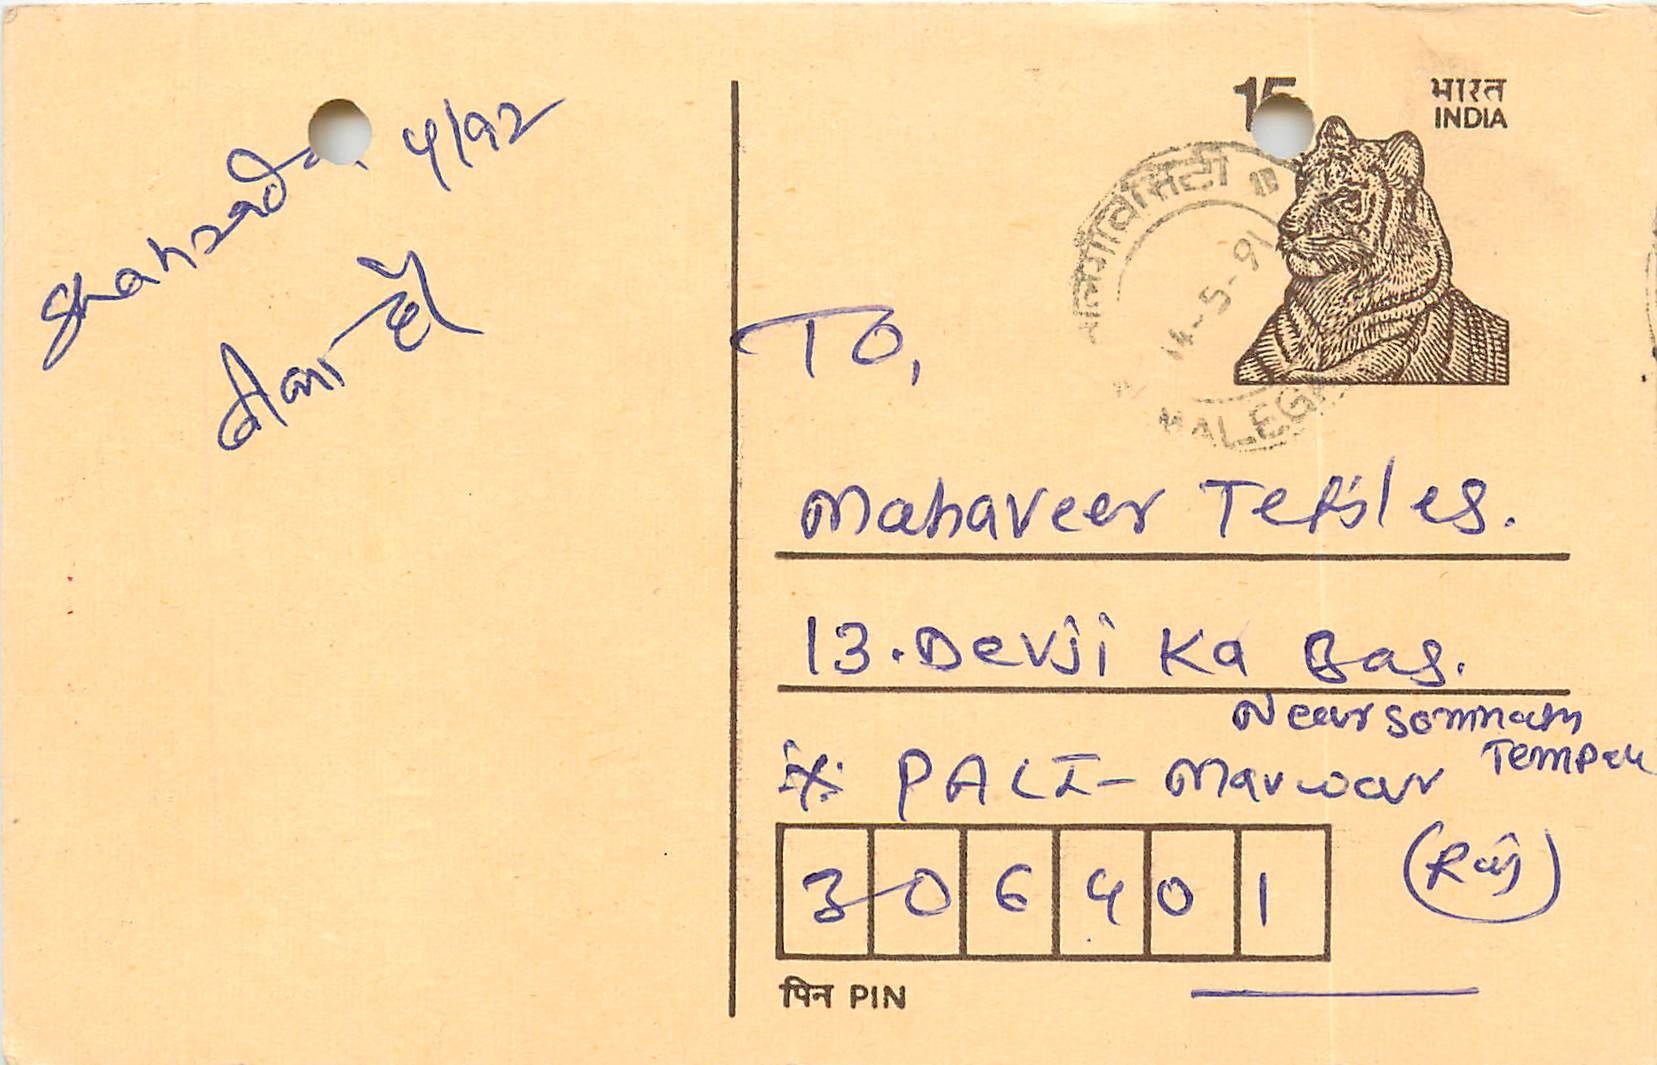 Shahzade 4/92
15 भारत
INDIA
मालेगाँव सिटी
14-5-91
MALEGA
To,
Mahaveer Tetsles.
13. Devji Ka Bas.
Near Somnath
Tempel
PALI- Marwar
(Raj)
306401
पिन PIN